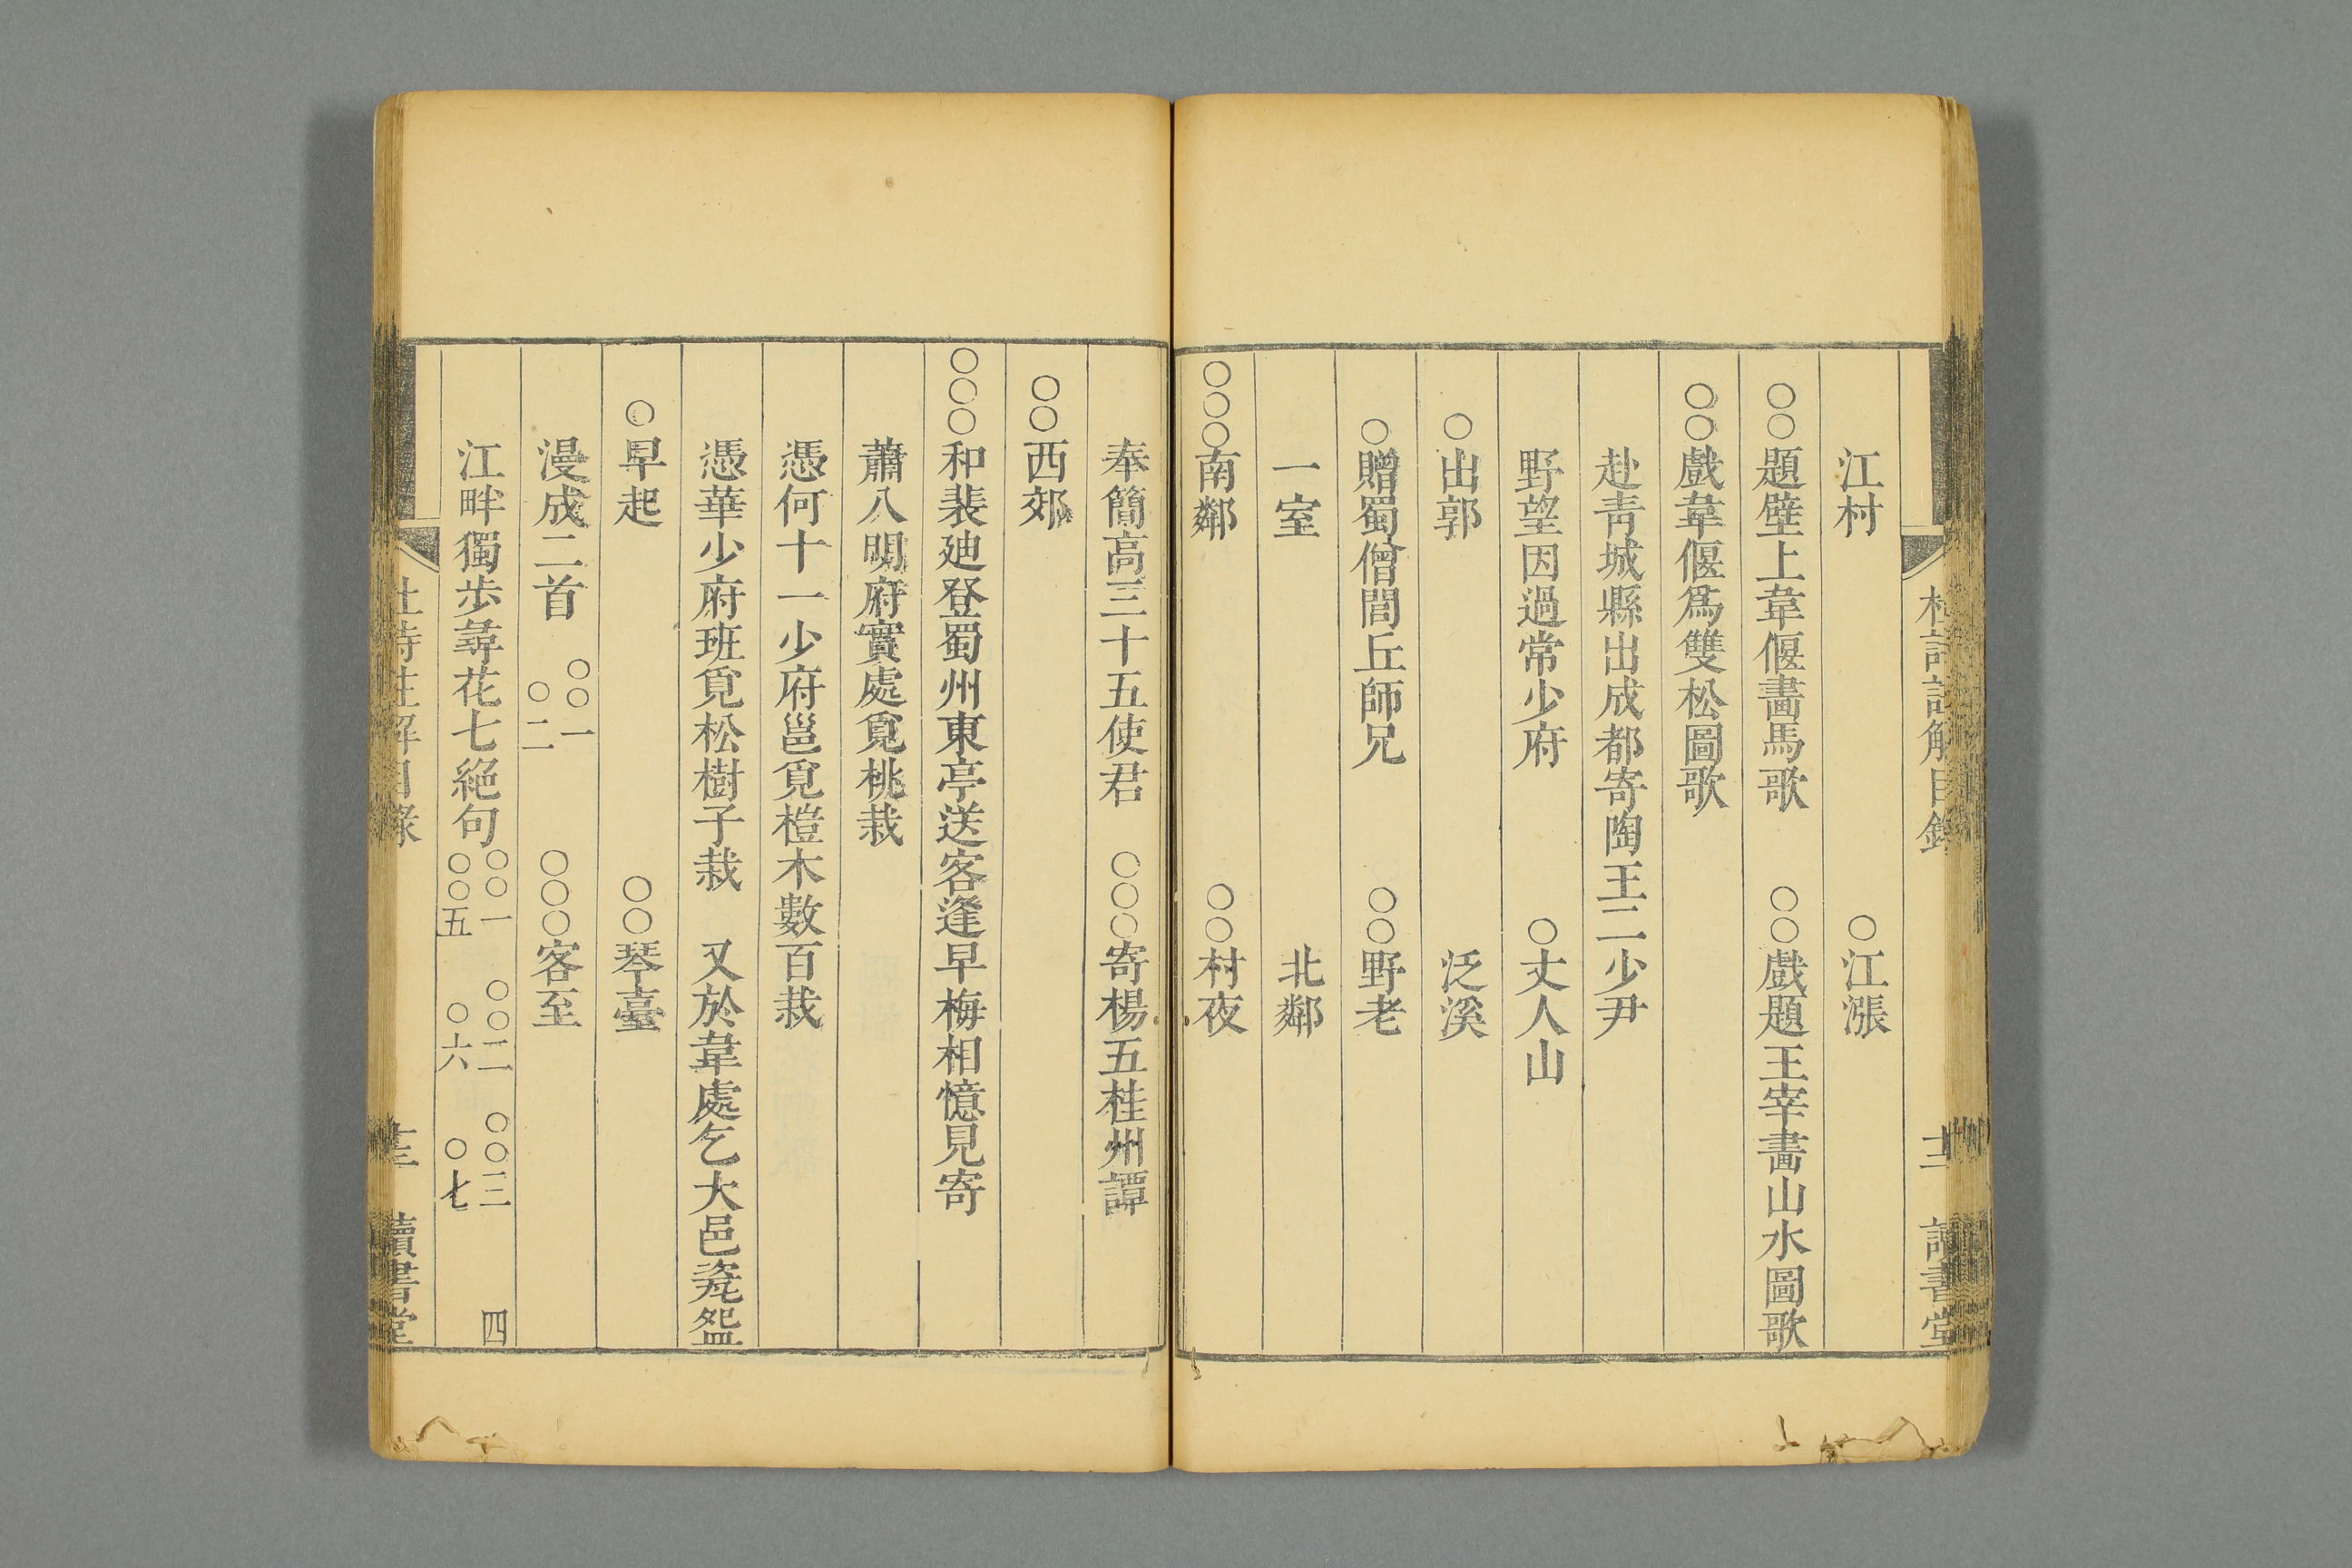 杜詩註解目錄 十二 讀書堂
江村 ○江漲
○○題壁上韋偃畫馬歌 ○○戲題王宰畫山水圖歌
○○戲韋偃爲雙松圖歌
赴青城縣出成都寄陶王二少尹
野望因過常少府 ○丈人山
○出郭 泛溪
○贈蜀僧閭丘師兄 ○○野老
一室 北鄰
○○○南鄰 ○○村夜
奉簡高三十五使君 ○○○寄楊五桂州譚
○○西郊
○○○和裴廸登蜀州東亭送客逢早梅相憶見寄
蕭八明府實處覓桃栽
憑何十一少府邕覓榿木數百栽
憑華少府班覓松樹子栽 又於韋處乞大邑瓷盌
○早起 ○○琴臺
漫成二首 ○○一 ○二 ○○○客至
江畔獨步尋花七絕句 ○○一 ○○二 ○○三 四 ○○五 ○六 ○七
杜詩註解目錄 十三 讀書堂